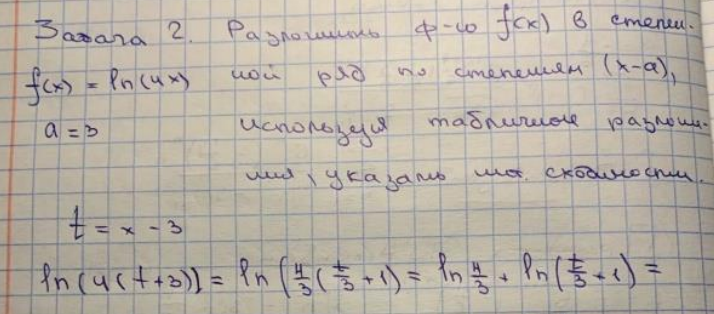 Задача 2. Разложить ф-ю f(x) в степен-
f(x) = ln(4x) ной ряд по степеням (x-a),
a = 3 используя табличное разложе-
ния, указать мн. сходимости.
t = x - 3
ln(4(t+3)) = ln(4/3(t/3+1) = ln 4/3 + ln(t/3+1) =